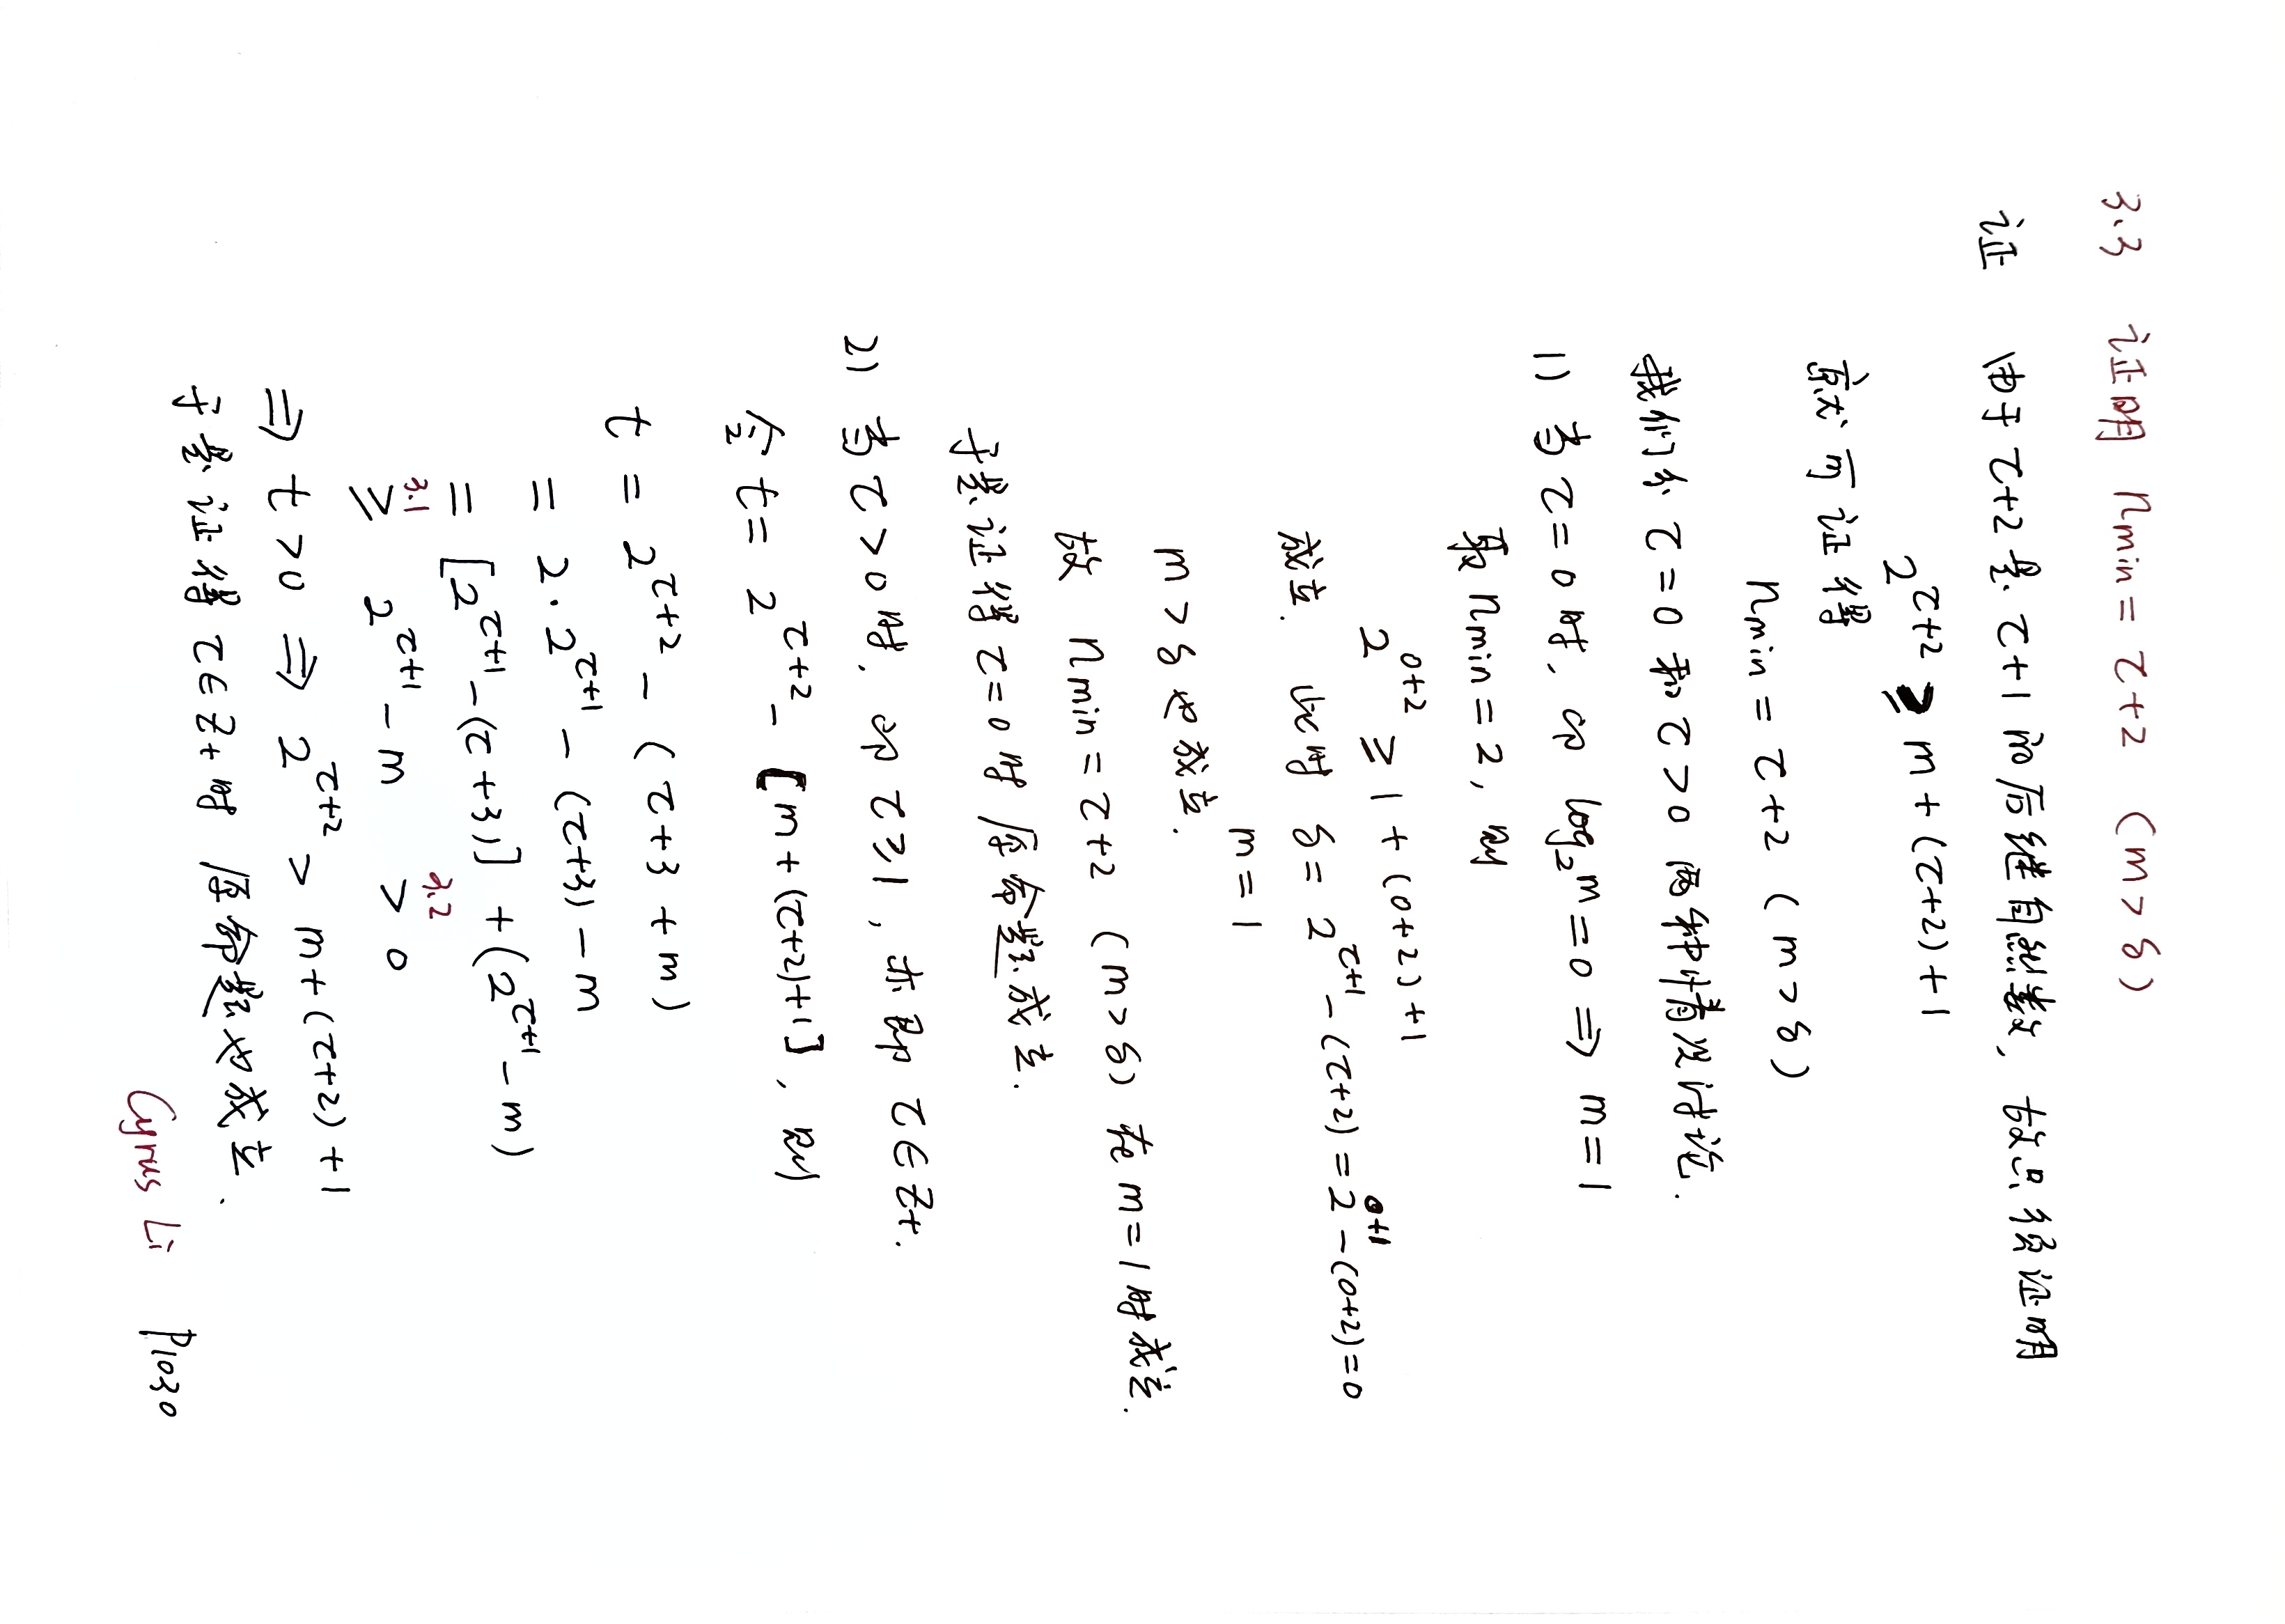 3.3 证明 n_min = τ+2 (m > δ)
证 由于 τ+2 是 τ+1 的后继自然数, 故只须证明
2^{τ+2} ≥ m + (τ+2) + 1
就可证得
n_min = τ+2 (m > δ)
我们分 τ=0 和 τ>0 两种情况讨论.
1) 当 τ=0 时, 即 log₂m = 0 ⇒ m = 1
取 n_min = 2, 则
2^{0+2} ≥ 1 + (0+2) + 1
成立. 此时 δ = 2^{τ+1} - (τ+2) = 2^{0+1} - (0+2) = 0
m = 1
m > δ 也成立.
故 n_min = τ+2 (m > δ) 在 m = 1 时成立.
于是证得 τ=0 时 原命题成立.
2) 当 τ>0 时, 即 τ≥1, 亦即 τ∈Z+.
令 t = 2^{τ+2} - [m + (τ+2)+1], 则
t = 2^{τ+2} - (τ+3+m)
= 2·2^{τ+1} - (τ+3) - m
= [2^{τ+1} - (τ+3)] + (2^{τ+1} - m)
3.1 3.2
≥ 2^{τ+1} - m > 0
⇒ t > 0 ⇒ 2^{τ+2} > m + (τ+2) + 1
于是证得 τ∈Z+ 时 原命题也成立.
Cyrus Li P1030